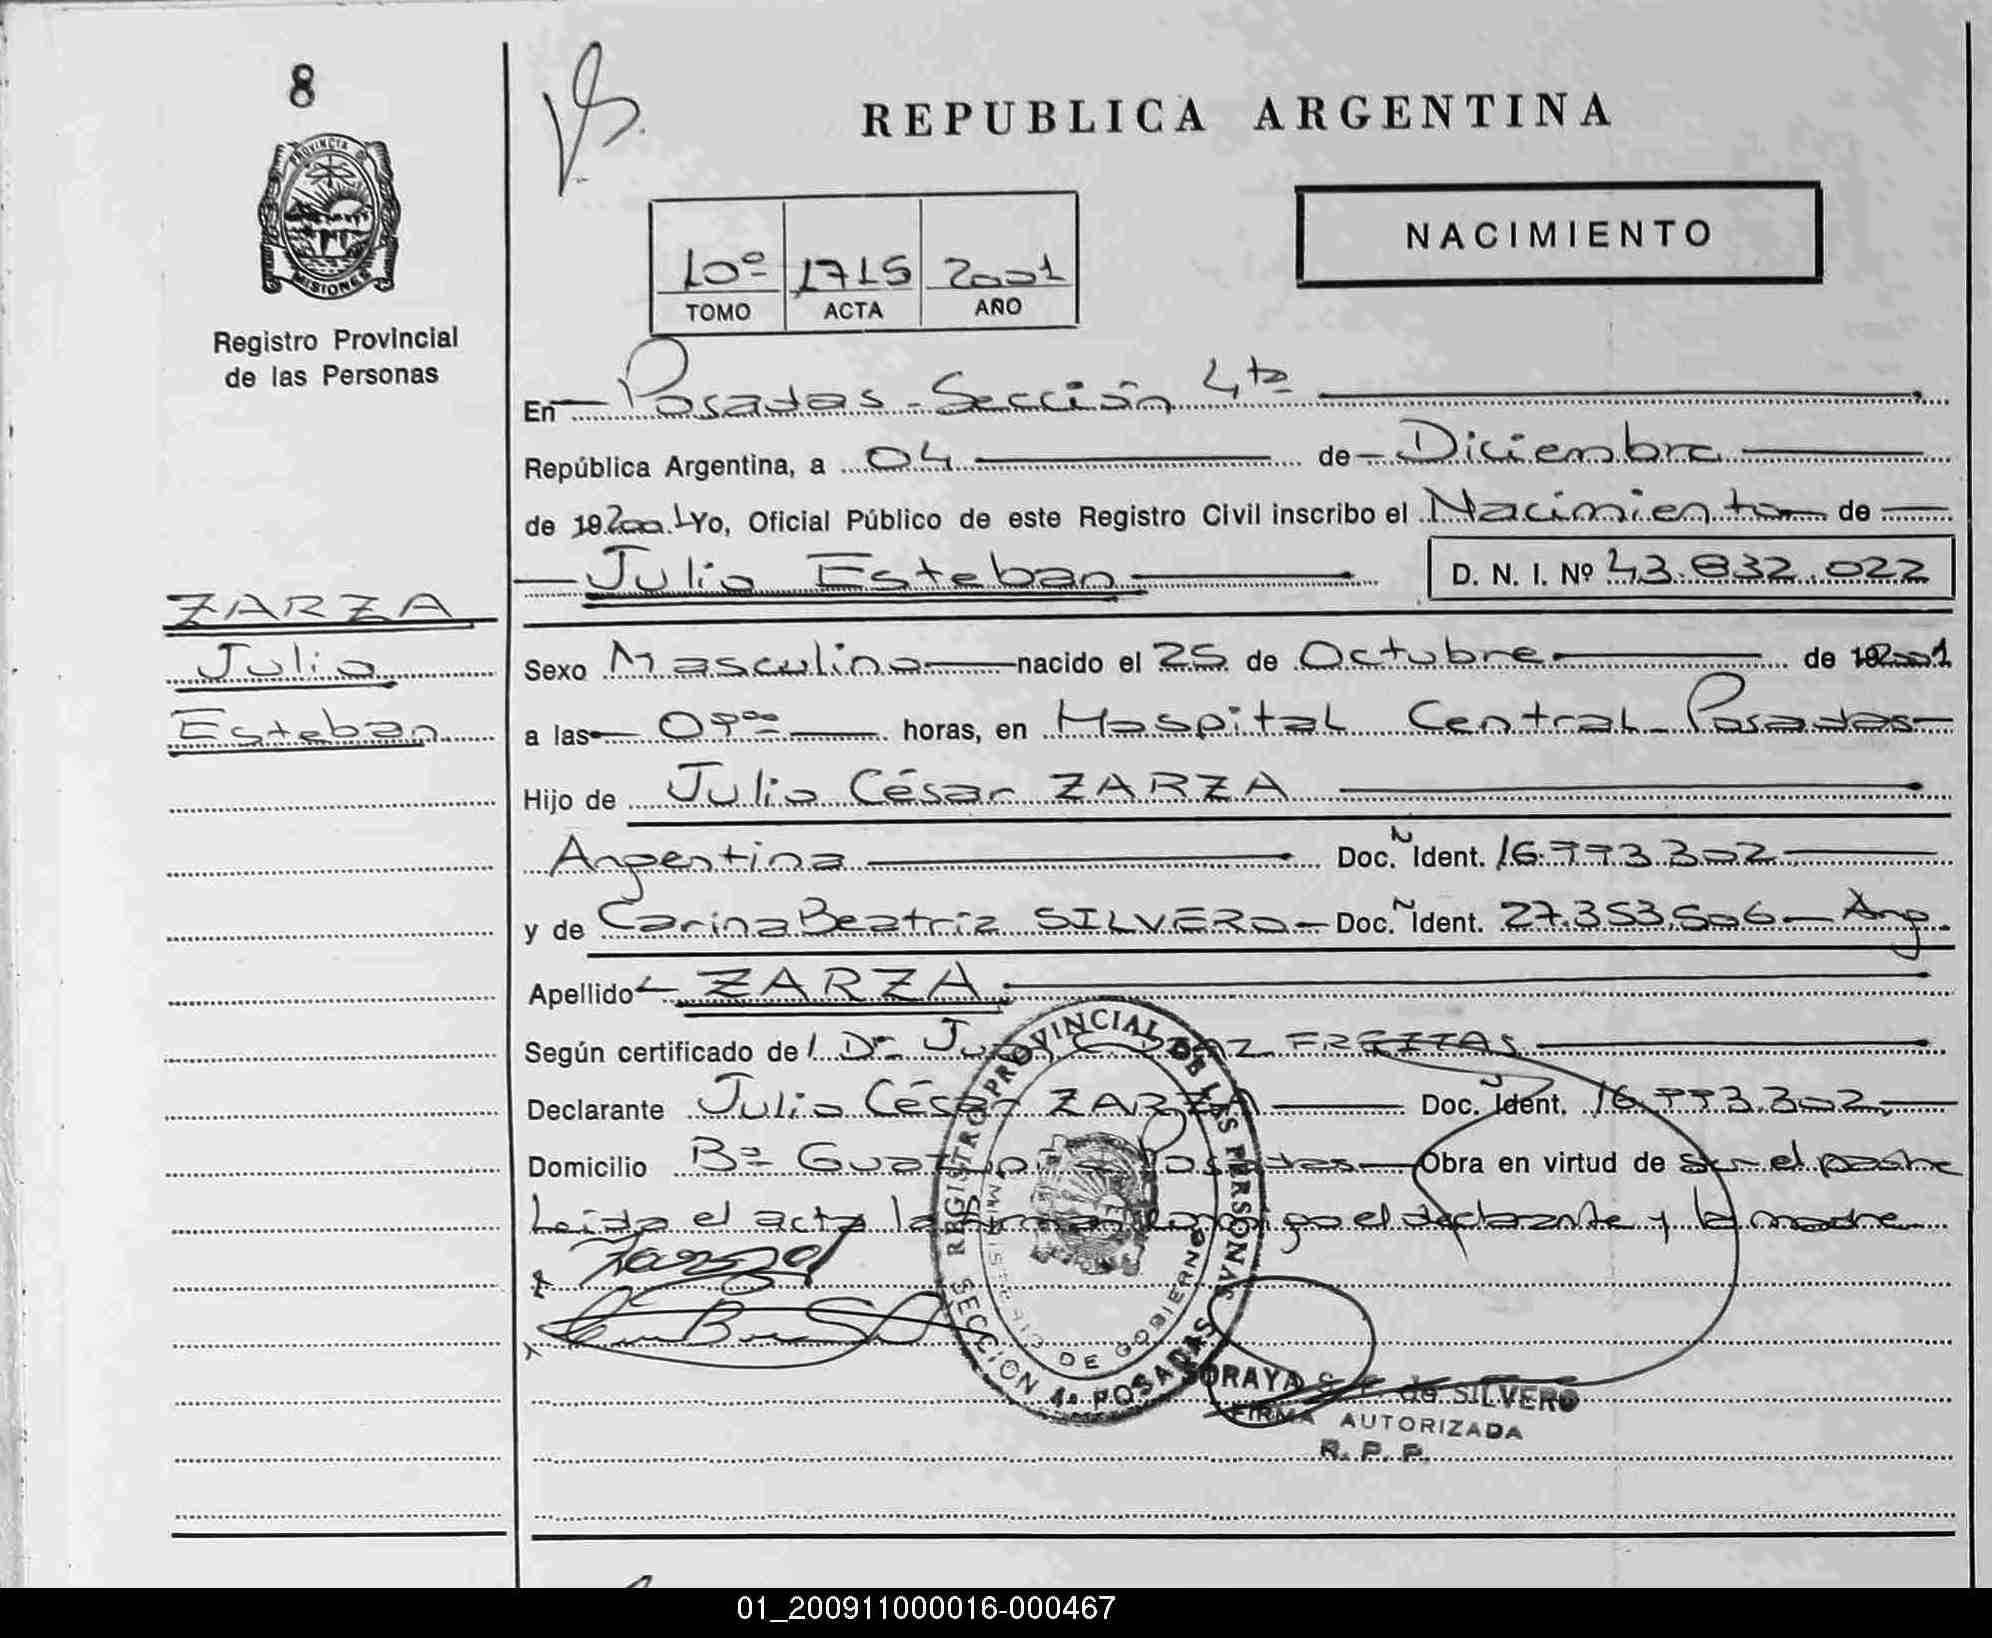 8
PROVINCIA DE
MISIONES
Registro Provincial
de las Personas
REPUBLICA ARGENTINA
NACIMIENTO
10º 1715 2001
TOMO ACTA AÑO
En Posadas - Sección 4ta
República Argentina, a 04 de Diciembre
de 19 2001 Yo, Oficial Público de este Registro Civil inscribo el Nacimiento de
Julio Esteban D. N. I. Nº 43.832.022
ZARZA
Julio
Esteban
Sexo Masculino nacido el 25 de Octubre de 19 2001
a las 09 00 horas, en Hospital Central - Posadas
Hijo de Julio César ZARZA
Argentina Doc. Ñ Ident. 16.993.302
y de Carina Beatriz SILVERO - Doc. Ñ Ident. 27.353.506 - Arg.
Apellido ZARZA
Según certificado de Dr. FREITAS
Declarante Julio César ZARZA Doc. Ident. 16.993.302
Domicilio Bº Posadas - Obra en virtud de ser el padre
Leída el acta la firman conmigo el declarante y la madre
REGISTRO PROVINCIAL DE LAS PERSONAS
SECCION 4ª POSADAS
DE GOBIERNO
SORAYA de SILVERO
FIRMA AUTORIZADA
R. P. P.
01_200911000016-000467